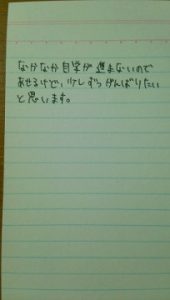 なかなか自学が進まないので
あせるけど、少しずつがんばりたい
と思います。